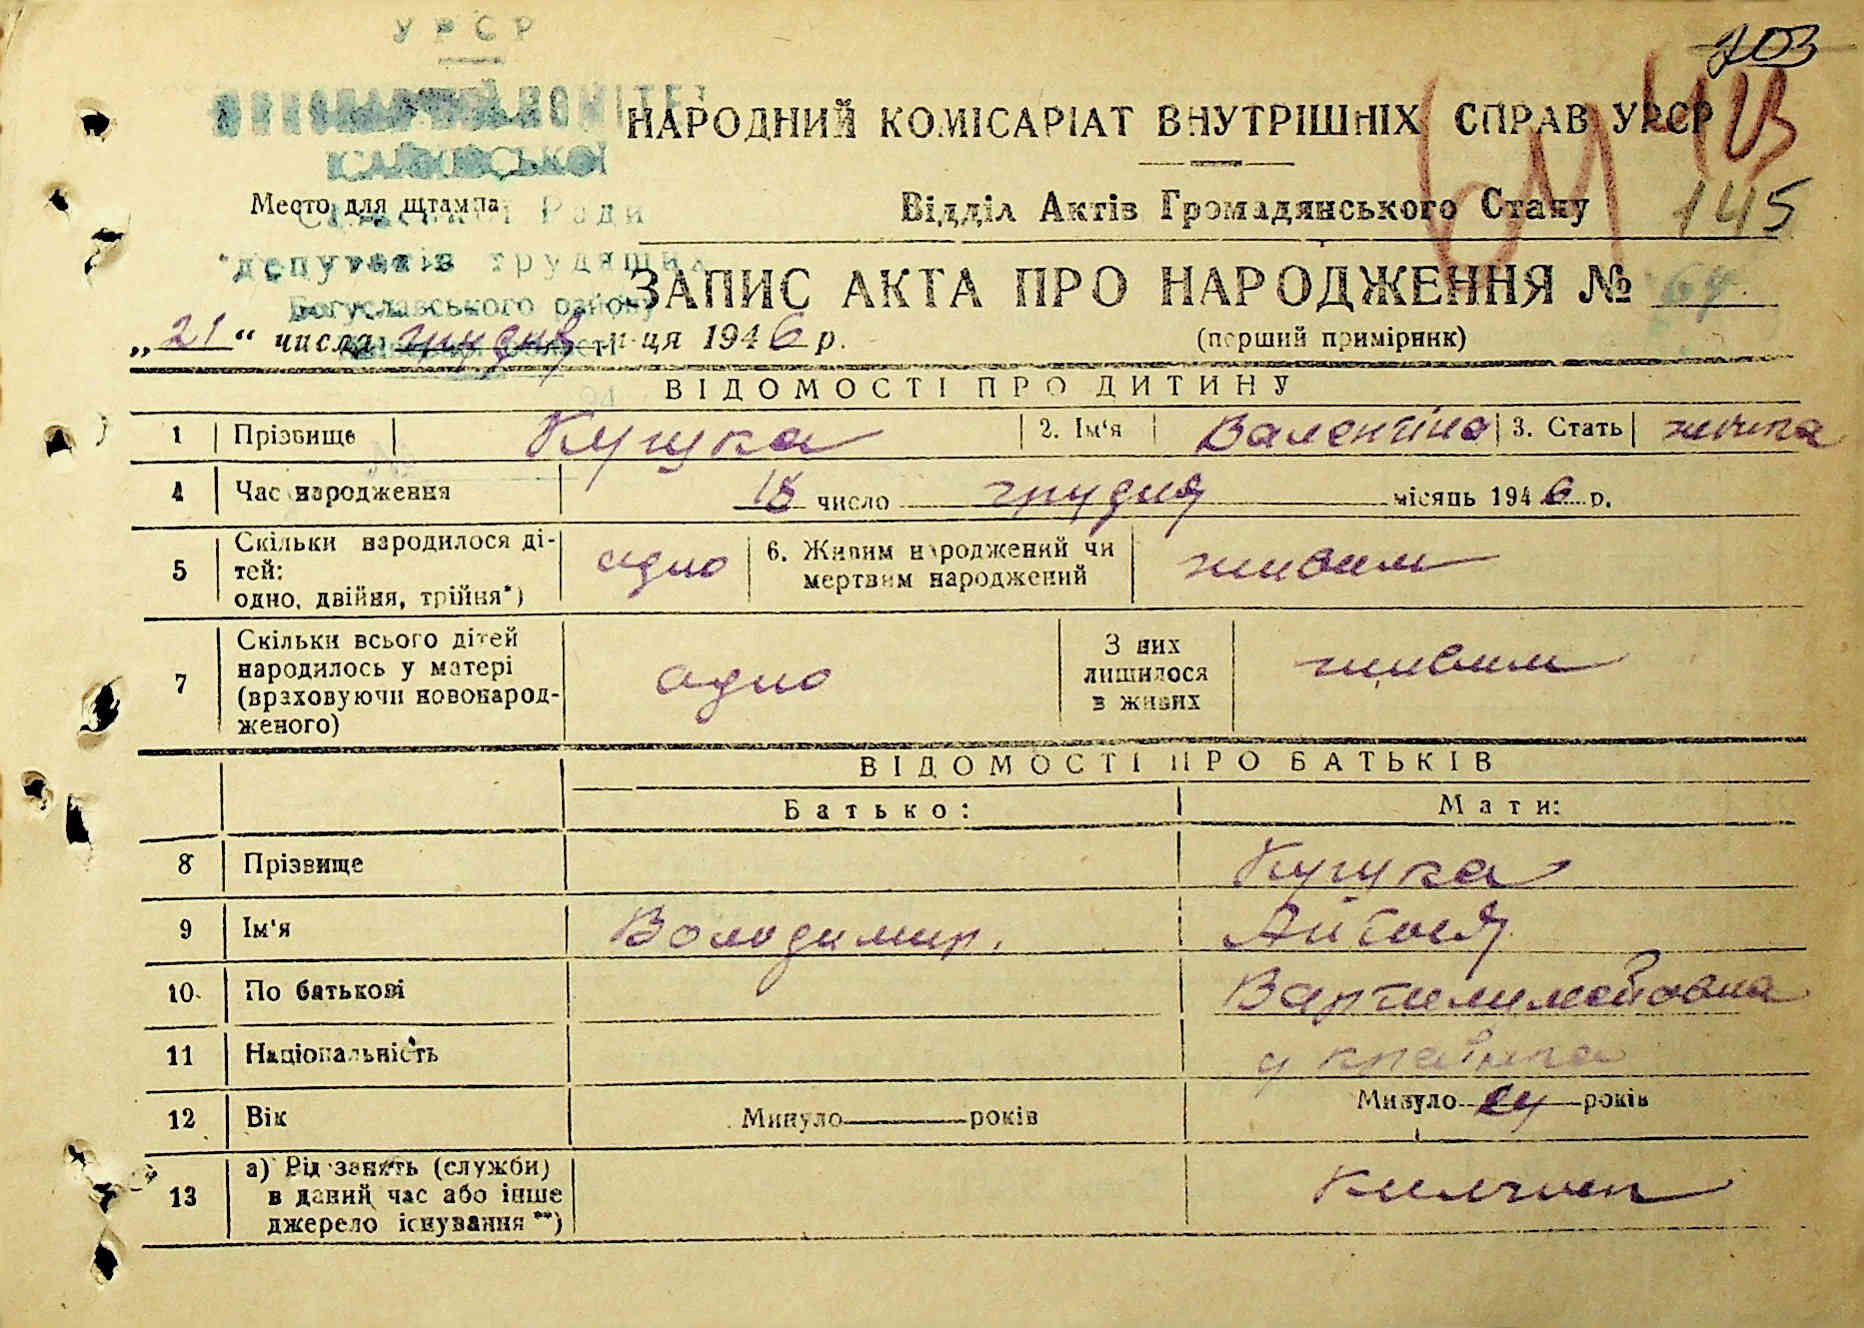 УРСР
ВИКОНАВЧИЙ КОМІТЕТ
703
НАРОДНИЙ КОМІСАРІАТ ВНУТРІШНІХ СПРАВ УРСР
Место для штампа
Ради
Відділ Актів Громадянського Стану
145
депутатів трудящих
Богуславського району
ЗАПИС АКТА ПРО НАРОДЖЕННЯ № 64
„21“ числа грудня м-ця 1946 р.
(перший примірник)
ВІДОМОСТІ ПРО ДИТИНУ
1 Прізвище 2. Ім'я Валентина 3. Стать
4 Час народження 18 число грудня місяць 1946 р.
5 Скільки народилося ді-
тей:
одно, двійня, трійня*)
одно
6. Живим народжений чи
мертвим народжений
живим
7 Скільки всього дітей
народилось у матері
(враховуючи новонарод-
женого)
одно
З них
лишилося
в живих
живим
ВІДОМОСТІ ПРО БАТЬКІВ
Батько: Мати:
8 Прізвище
9 Ім'я Володимир.
10. По батькові
11 Національність українка
12 Вік Минуло років Минуло 24 років
13 а) Рід занять (служби)
в даний час або інше
джерело існування **)